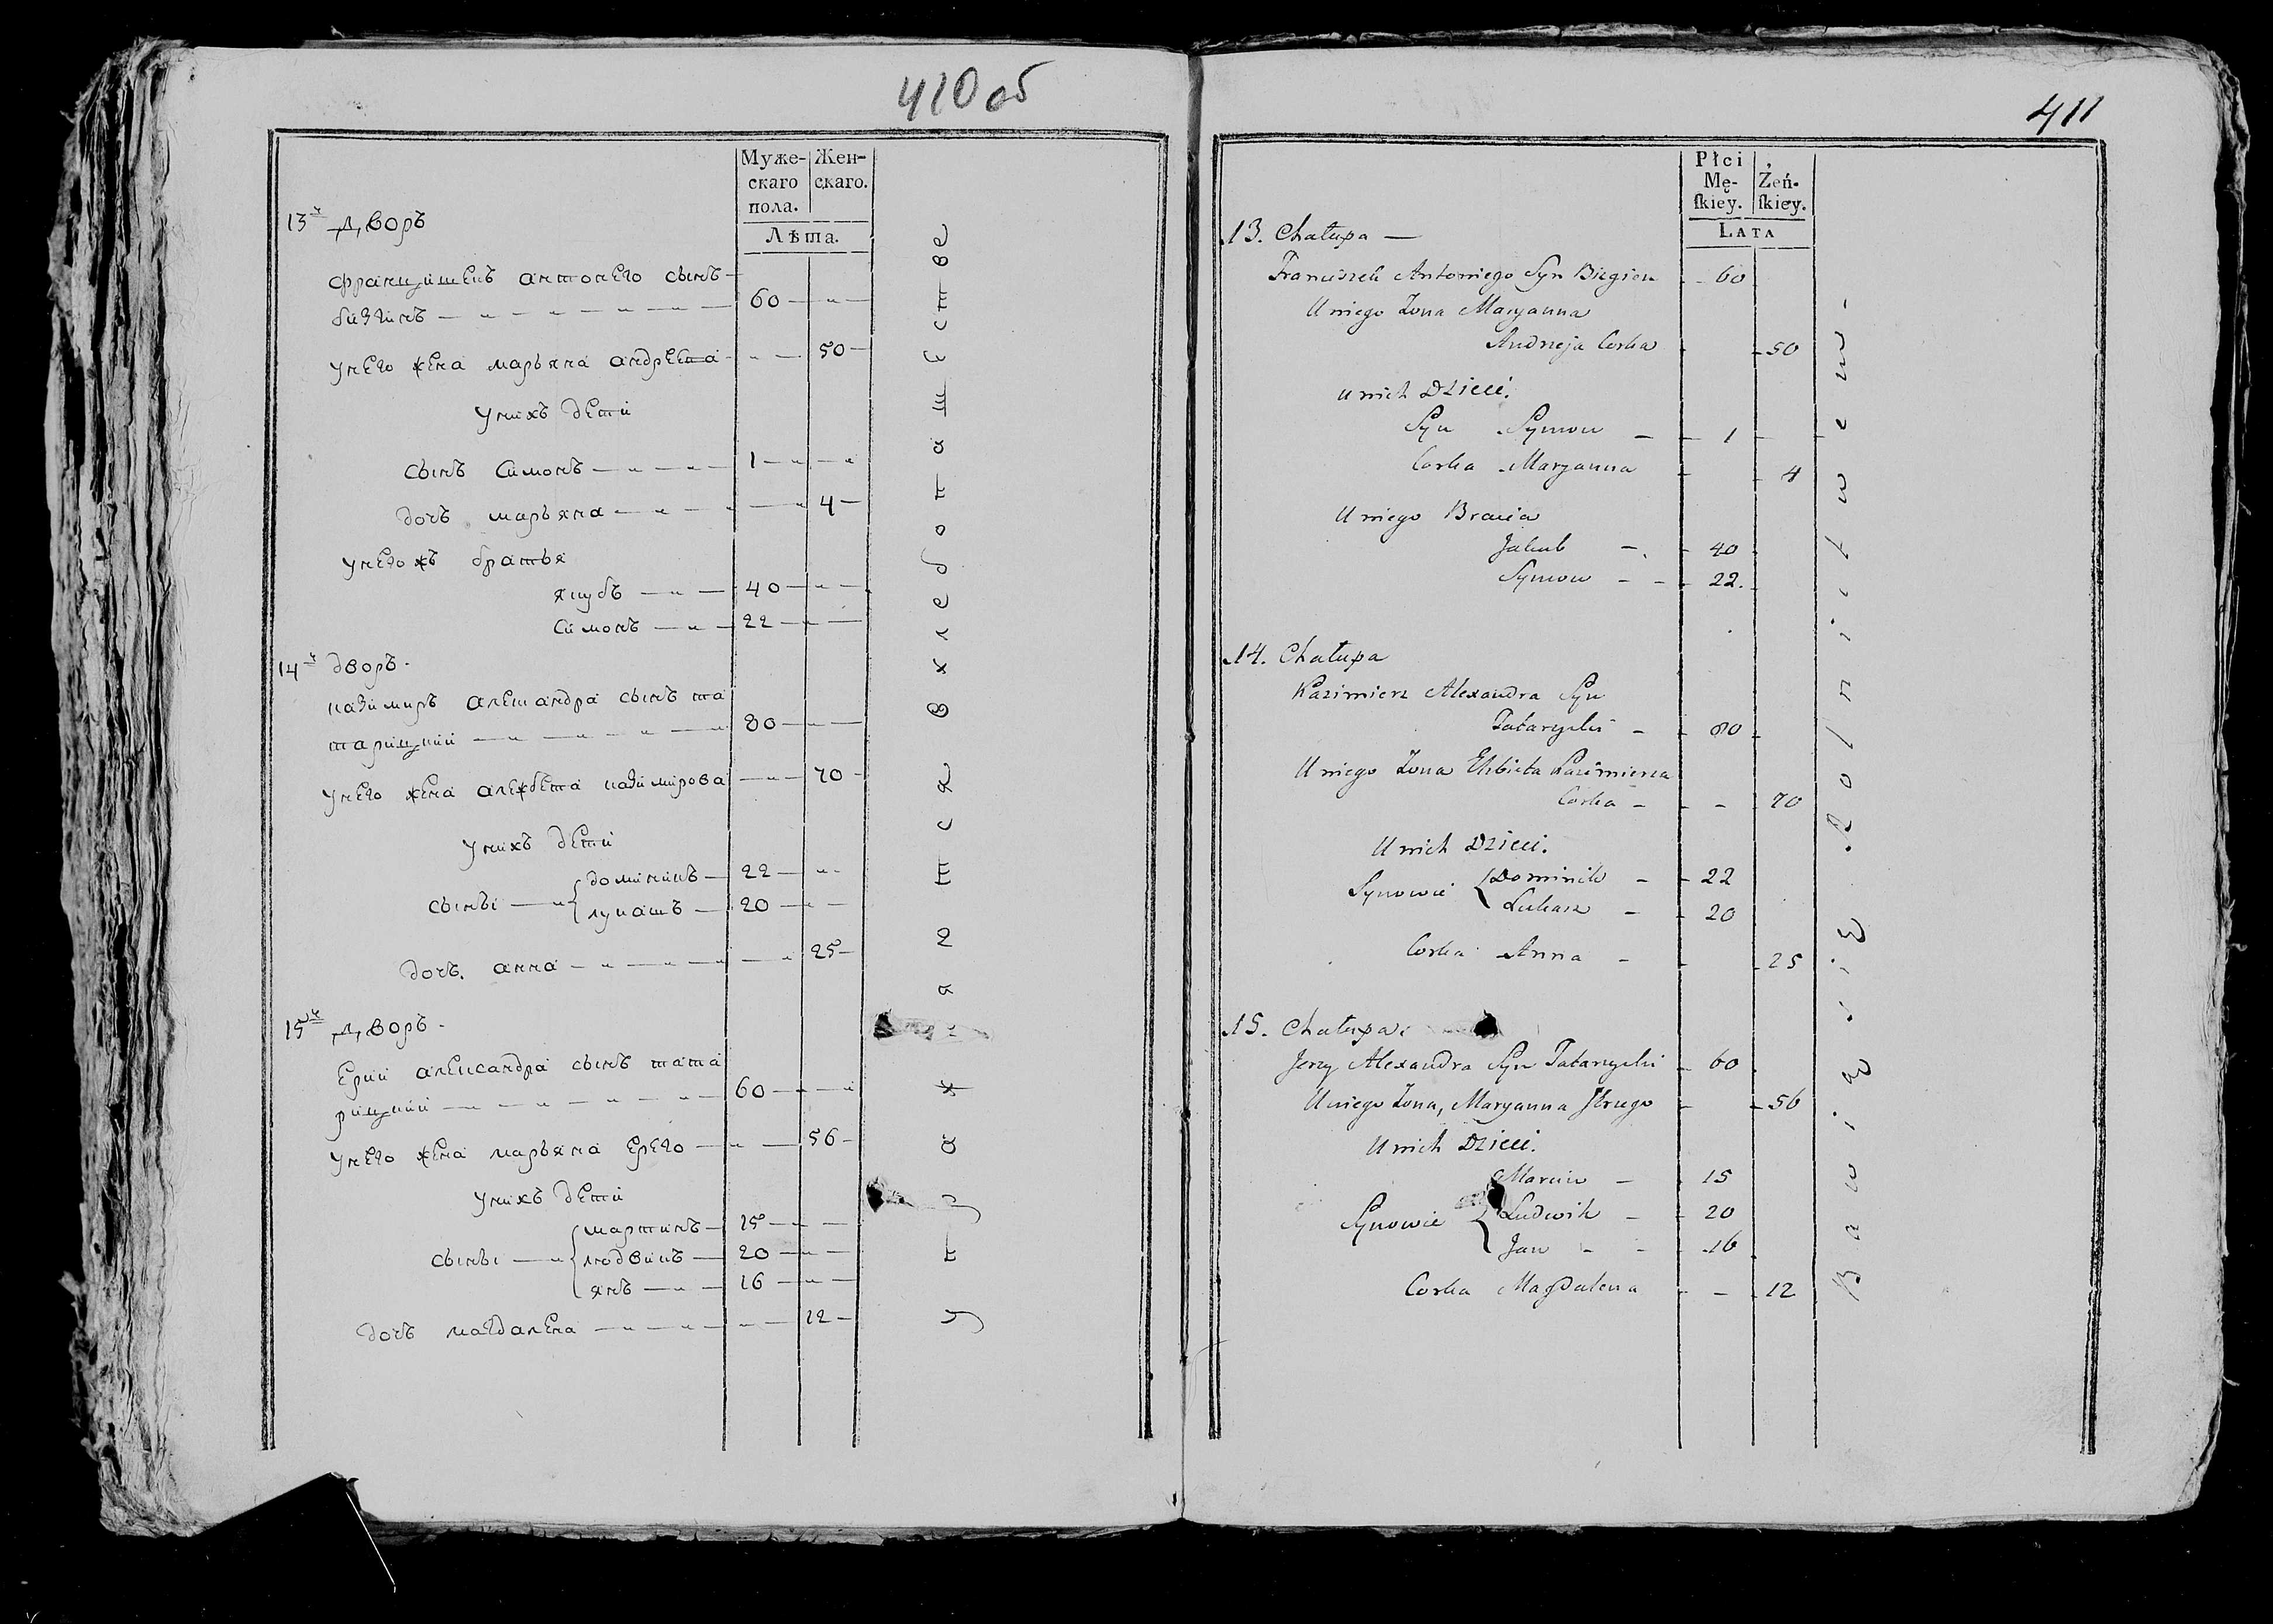 410 об
Муже-
скаго
пола.
Жен-
скаго.
Лѣта.
13й дворъ
францишекъ антонего сынъ
бизгинъ 60
унего жена марьяна андректа 50
унихъ дети
сынъ Симонъ 1
дочъ марьяна 4
унегожъ братья
якубъ 40
Симонъ 22
14й дворъ
казимиръ александра сынъ та
тарицкий 80
унего жена алежбета казимирова 70
унихъ дети
сыны доминикъ 22
лукашъ 20
дочъ анна 25
15й дворъ
Ерий александра сынъ тата
рицкий 60
унего жена марьяна Ерего 56
унихъ дети
сыны мартинъ 15
людвикъ 20
янъ 16
дочъ магдалена 12
411
Płci
Mę-
skiey.
Żeń-
skiey.
LATA
13. Chałupa
Franciszek Antoniego Syn Biegien 60
U niego Zona Maryanna
Andrzeja Corka 50
U nich Dzieci.
Syn Symon 1
Corka Maryanna 4
U niego Bracia
Jakub 40
Symon 22.
14. Chałupa
Kazimierz Alexandra Syn
Tatarycki 80
U niego Zona Elzbieta Kazimierza
Corka 70
U nich Dzieci.
Synowie Dominik 22
Lukasz 20
Corka Anna 25
15. Chałupa
Jerzy Alexandra Syn Tatarycki 60
U niego Zona, Maryanna 56
U nich Dzieci.
Marcin 15
Synowie Ludwik 20
Jan 16
Corka Magdalena 12
Bawią się Rolnictwem